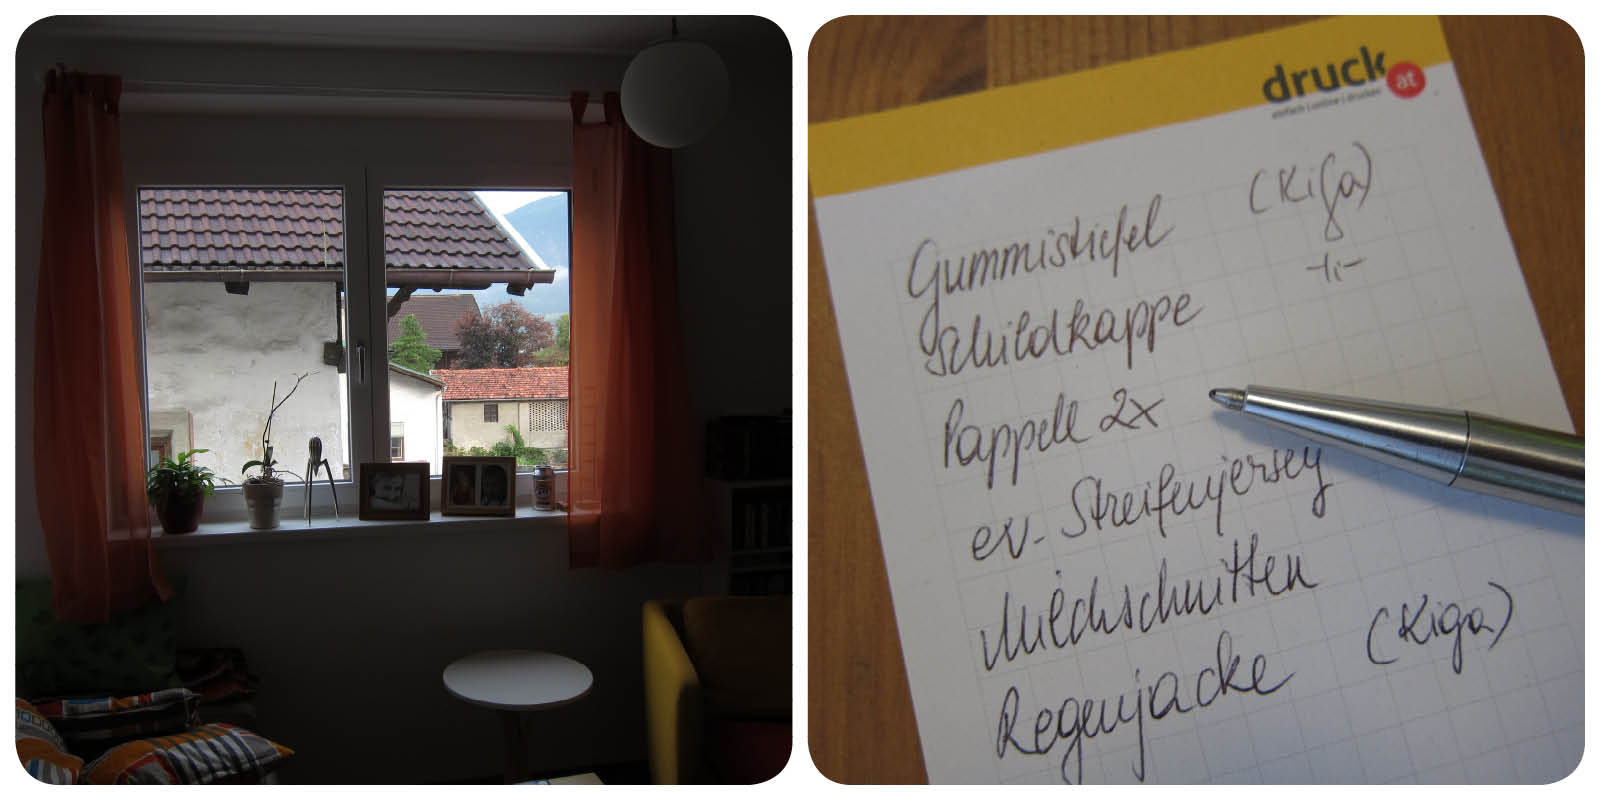 druck at
einfach | online | drucken
Gummistiefel (Kiga)
Schildkappe -"-
Pappelle 2x
ev. Streifenjersey
Milchschnitten
Regenjacke (Kiga)